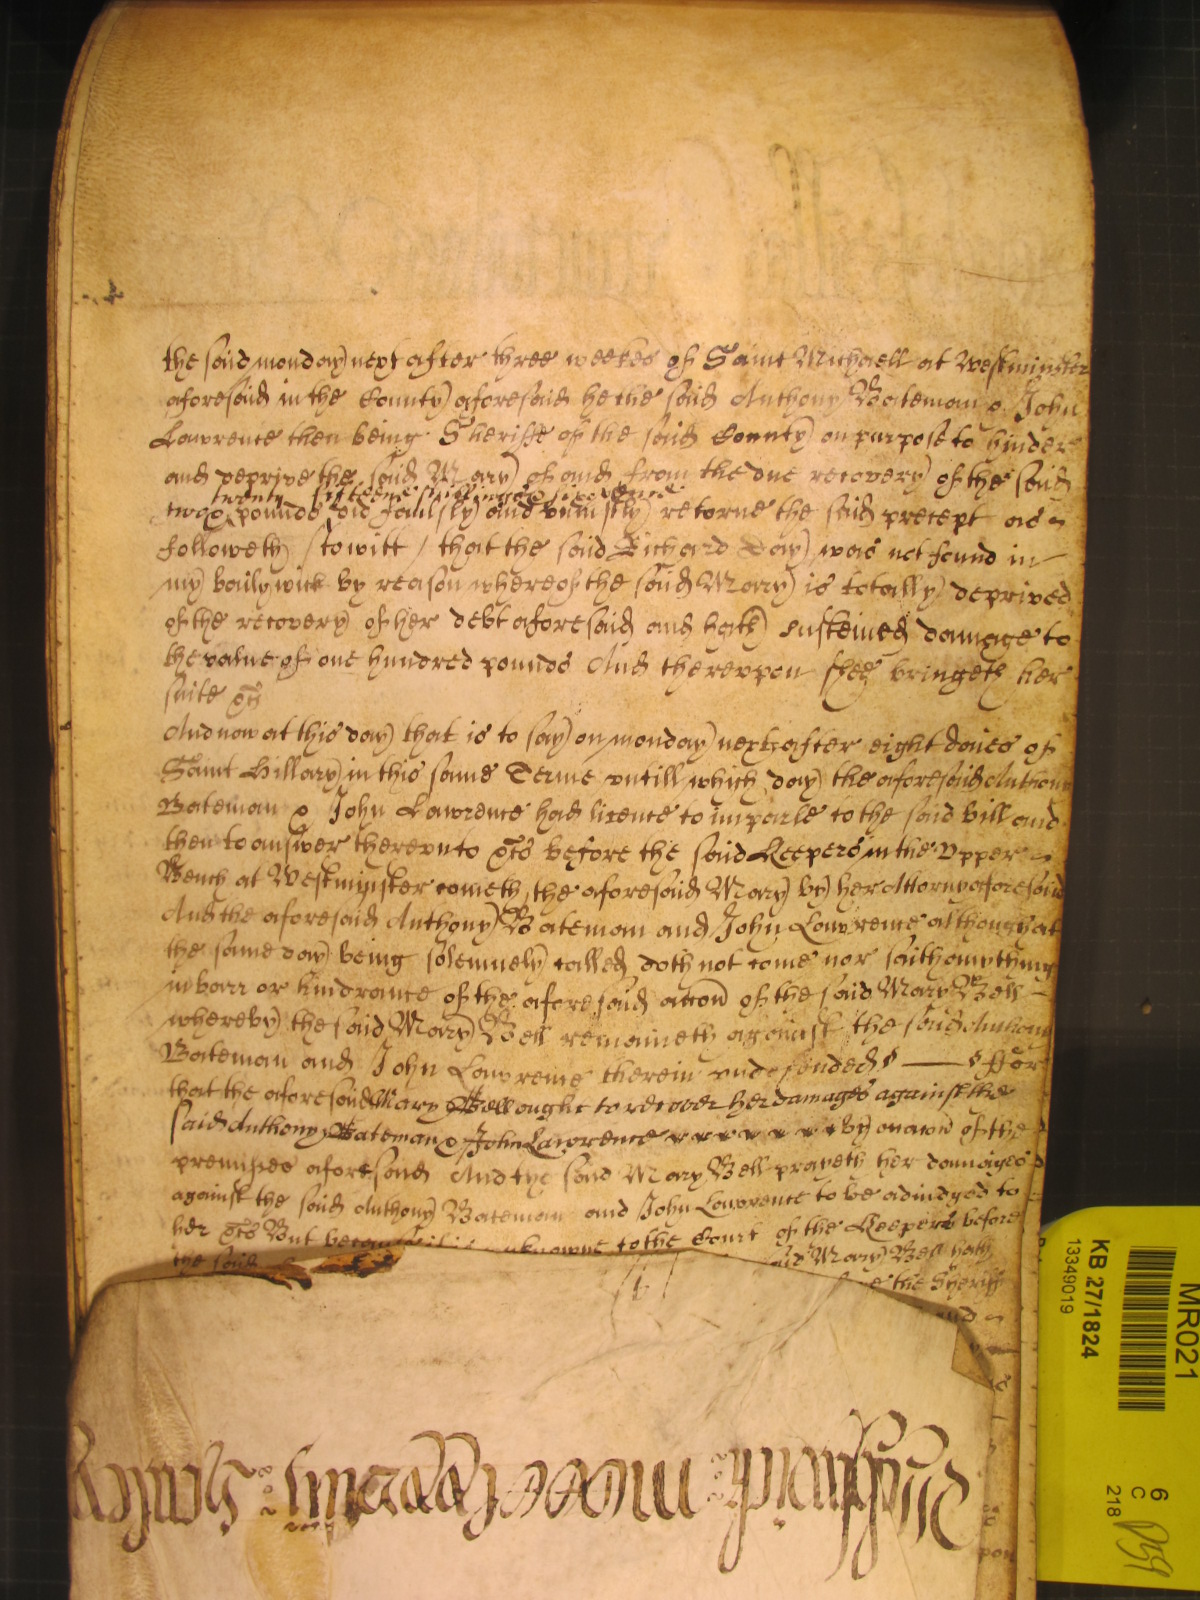 the said monday next after three weekes of Saint Michaell at Westminster
aforesaid in the County aforesaid he the said Anthony Bateman & John
Lawrence then being Sheriffe of the said County on purpose to hinder
and deprive the said Mary of and from the due recovery of the said
twenty fifteene shillings & seaven
two pounds did faulsly and uniustly retorne the said precept as
followeth (to witt) that the said Richard Day was not found in
my bailywick by reason whereof the said Mary is totally deprived
of the recovery of her debt aforesaid and hath susteined damage to
the value of one hundred pounds And thereupon shee bringeth her
suite &c
And now at this day that is to say on monday next after eight daies of
Saint Hillary in this same Terme untill which day the aforesaid Anthony
Bateman & John Lawrence had licence to imparle to the said bill and
then to answer thereunto &c before the said Keepers in the Upper
Bench at Westminster cometh the aforesaid Mary by her Attorny aforesaid
And the aforesaid Anthony Bateman and John Lawrence although at
the same day being solemnely called doth not come nor saith anything
in barr or hindrance of the aforesaid accon of the said Mary Bell
whereby the said Mary Bell remaineth against the said Anthony
Bateman and John Lawrence therein undefended ffor
that the aforesaid Mary Bell ought to recover her damages against the
said Anthony Bateman & John Lawrence by occasion of the
premisses aforesaid And the said Mary Bell prayeth her damages
against the said Anthony Bateman and John Lawrence to be adiudged to
her &c But because it is unknowne to the Court of the Keepers before
the said said Mary Bell hath
the Sheriff
and
MR021
KB 27/1824
13349019
6
C
218